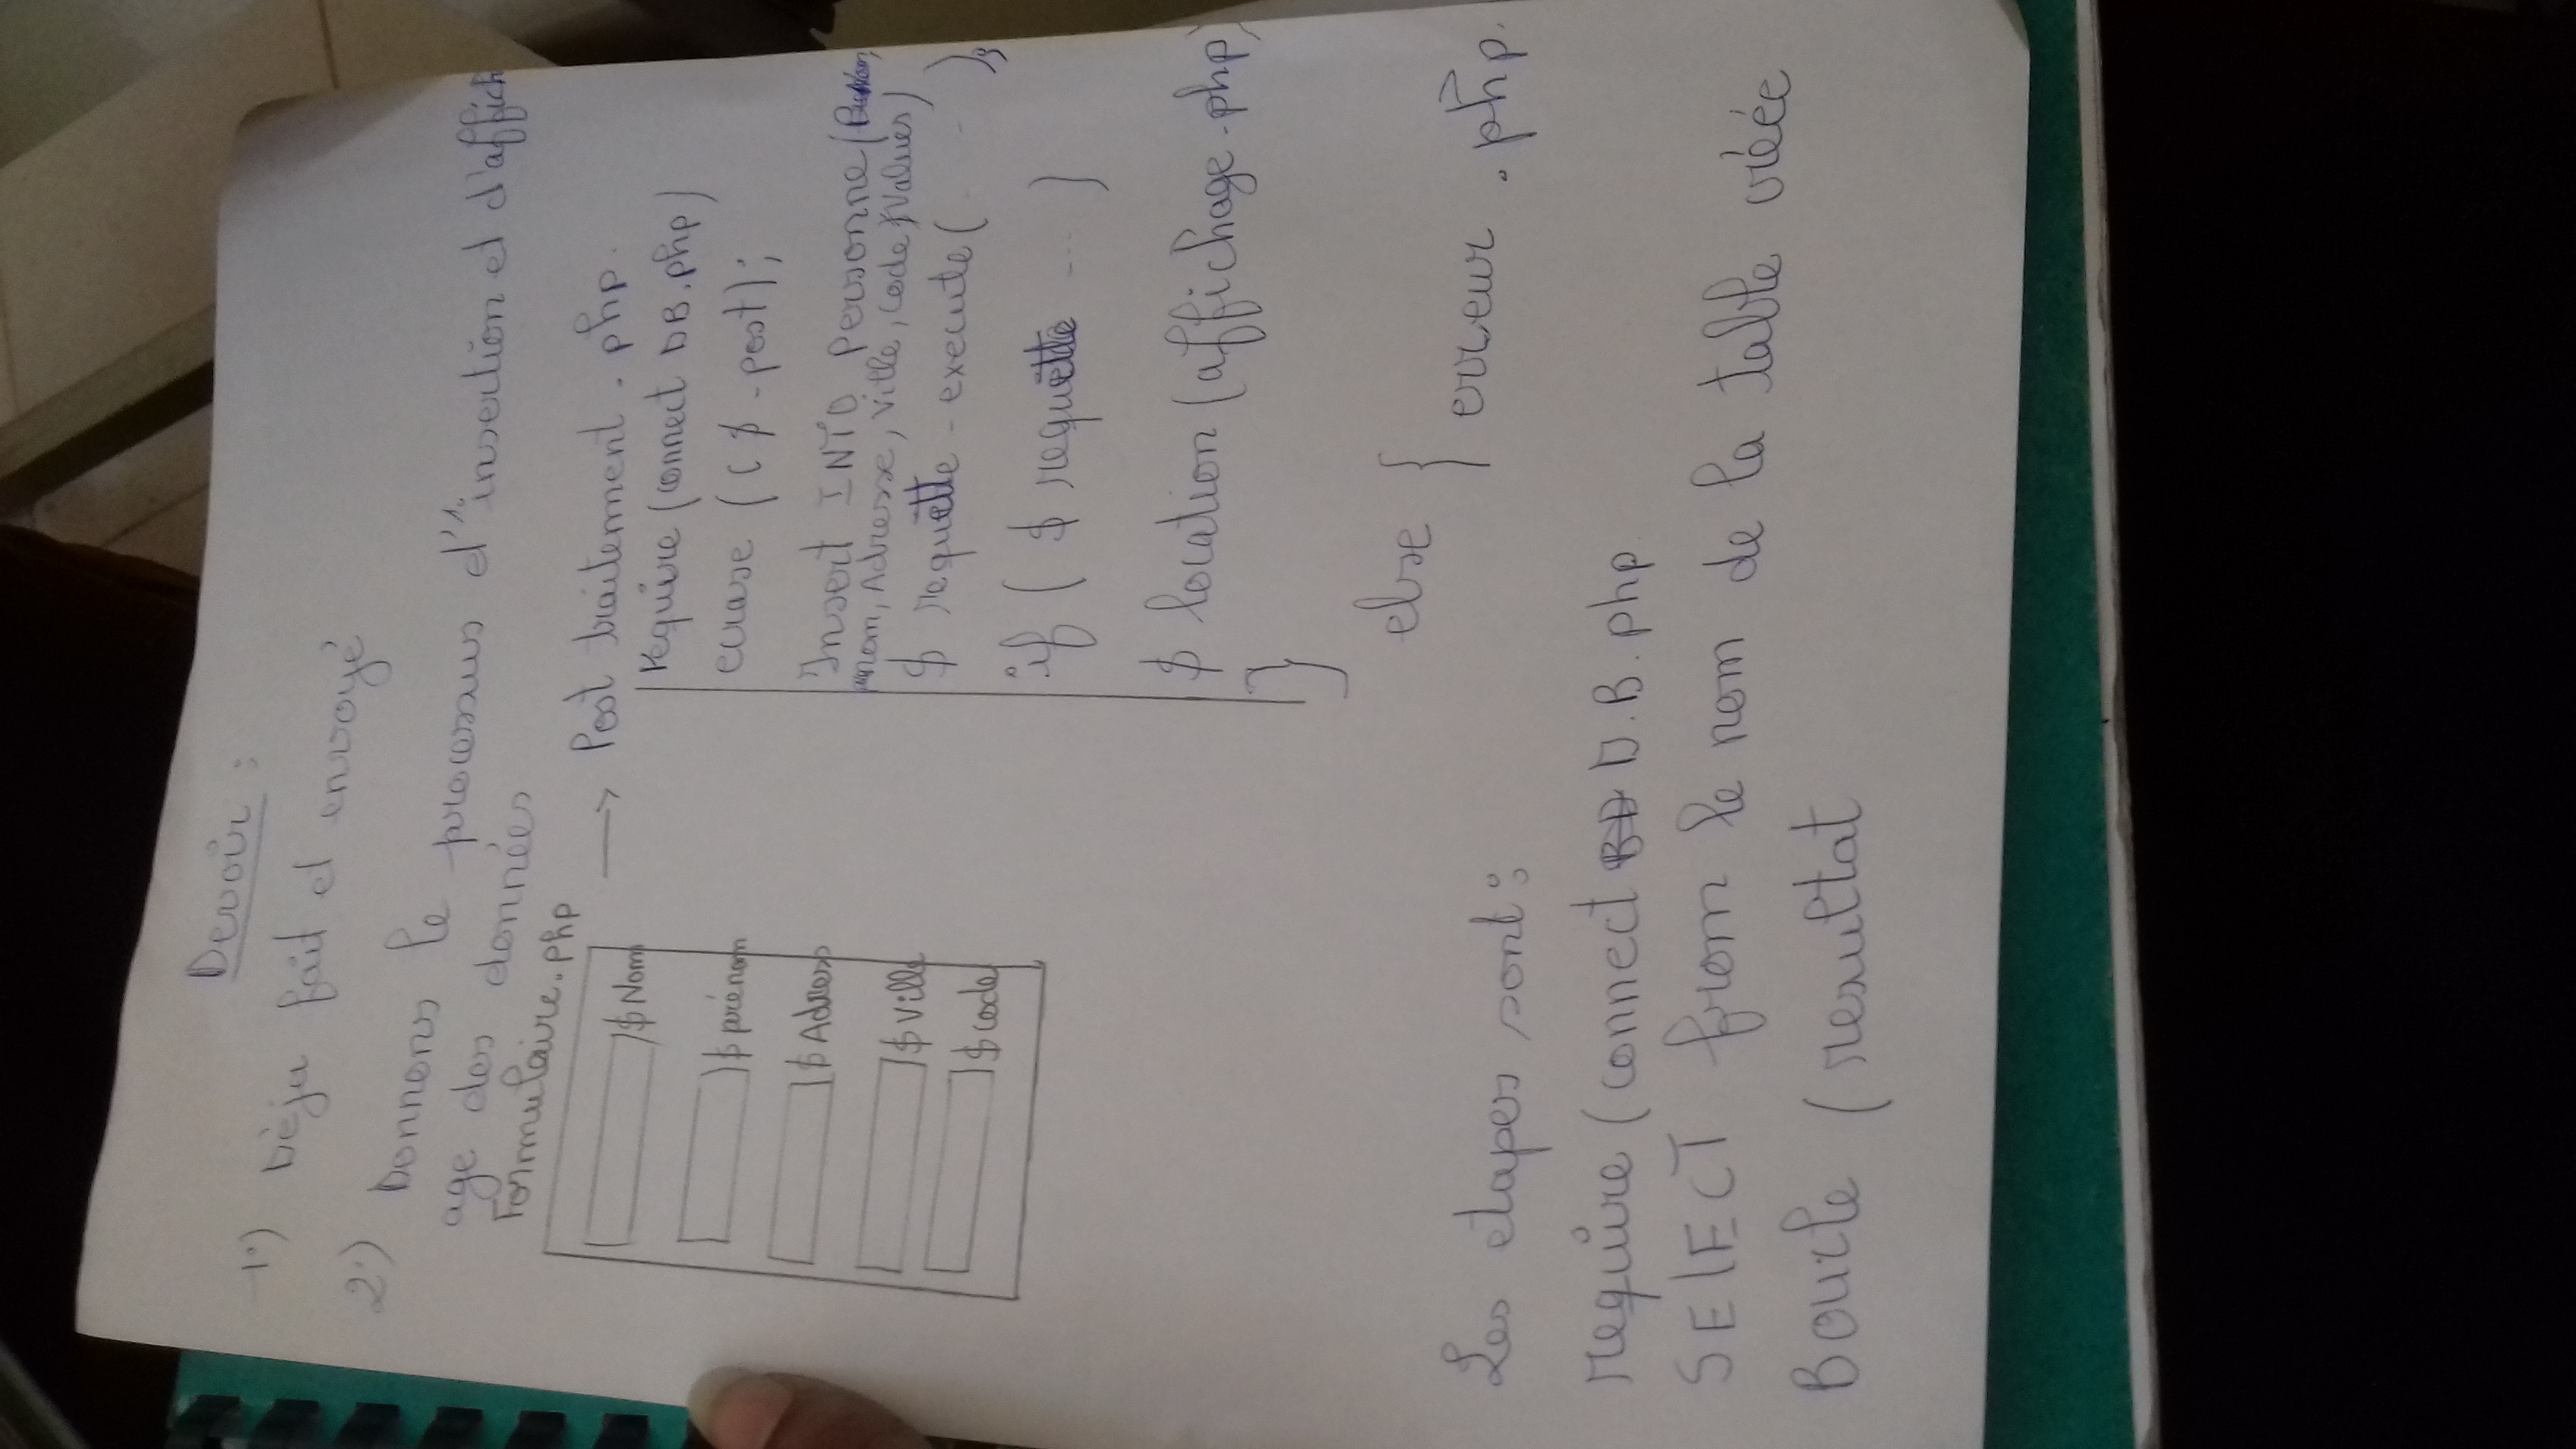 Devoir :
1°) Dèja fait et envoyé
2°) Donnons le processus d'insertion et d'affich
age des données
Formulaire.php
$ Nom
$ prénom
$ Adress
$ Ville
$ code
→ Post traitement . php.
require (connect DB.php)
( $ - post);
Insert INTO Personne (
nom, Adresse, Ville, code Values)
$ requette - execute ( - );
if ( $ requette ... )
$ location (affichage.php)
}
else { erreur .php.
Les etapes sont :
require (connect D.B. php
SElECT from le nom de la table créée
Boucle ( resultat